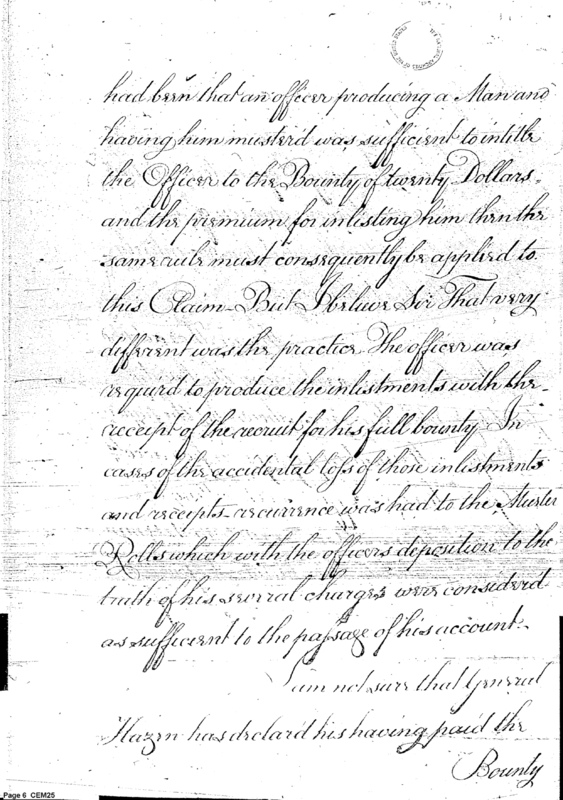 had been that an officer producing a Man and
having him musterd was sufficient to intitle
the Officer to the Bounty of twenty Dollars.
and the premium for inlisting him then the
same rule must consequently be applied to
this Claim - But I believe Sir That very
different was the practice The officer was
requird to produce the inlistments with the
receipt of the recruit for his full bounty In
cases of the accidental loss of those inlistments
and receipts - recurrence was had to the Muster
Rolls which with the officers deposition to the
truth of his several charges were considerd
as sufficient to the passage of his account.
I am not sure that General
Hazen has declard his having paid the
Bounty
Page 6 CEM25